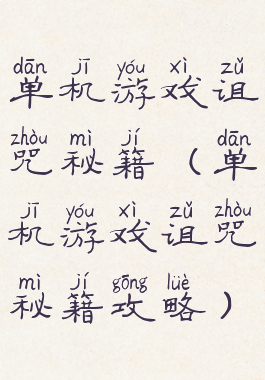 dān jī yóu xì zǔ
单机游戏诅
zhòu mì jí dān
咒秘籍（单
jī yóu xì zǔ zhòu
机游戏诅咒
mì jí gōng lüè
秘籍攻略）